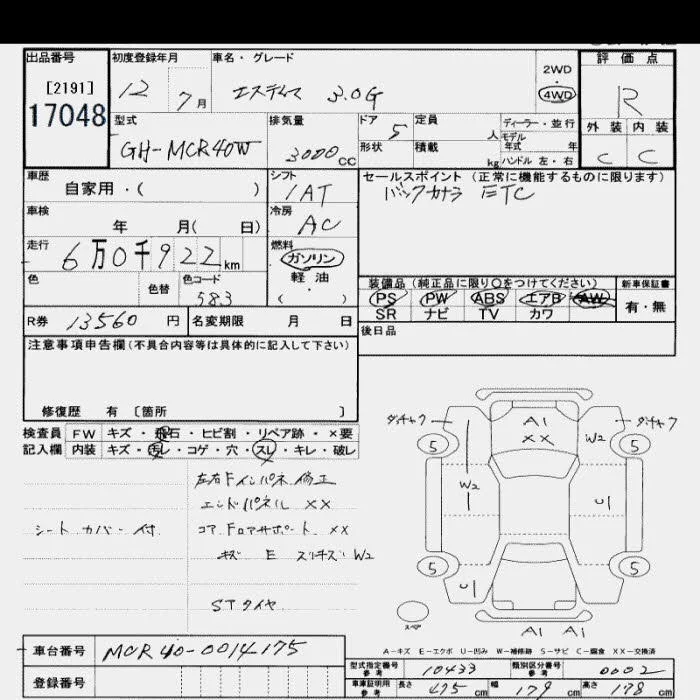 出品番号 初度登録年月 車名・グレード 2WD・4WD 評価点
[2191]
17048
12 7月 エスティマ 3.0G R
外装 内装
C C
型式 排気量 ドア 定員 ディーラー・並行
GH-MCR40W 3000CC 5 人 モデル年式 年
形状 積載 kg ハンドル 左・右
車歴 シフト セールスポイント (正常に機能するものに限ります)
自家用・( ) IAT バックカメラ ETC
車検 冷房
年 月( 日) AC
走行 燃料
6万0千922km ガソリン
軽油
( )
色 色替 色コード
583
装備品 (純正品に限り○をつけてください) 新車保証書
PS PW ABS エアB AW 有・無
SR ナビ TV カワ
R券 13560円 名変期限 月 日 後日品
注意事項申告欄(不具合内容等は具体的に記入して下さい)
修復歴 有 [箇所 ]
検査員 FW キズ・飛石・ヒビ割・リペア跡・×要
記入欄 内装 キズ・汚レ・コゲ・穴・スレ・キレ・破レ
左右Fインパネ修正
エンドパネル ××
シートカバー付 コアFロアサポート ××
キズ E スリキズ W2
STタイヤ
ダッチャク A1 ダッチャク
×× W2
5 5
W2 U
5 5
U
スペア
A1 A1
A-キズ E-エクボ U-凹み W-補修跡 S-サビ C-腐食 XX-交換済
車台番号 MCR40-0014175
型式指定番号 参考 10433 類別区分番号 参考 0002
登録番号
車庫証明用 参考 長さ 475cm 幅 179cm 高さ 178cm